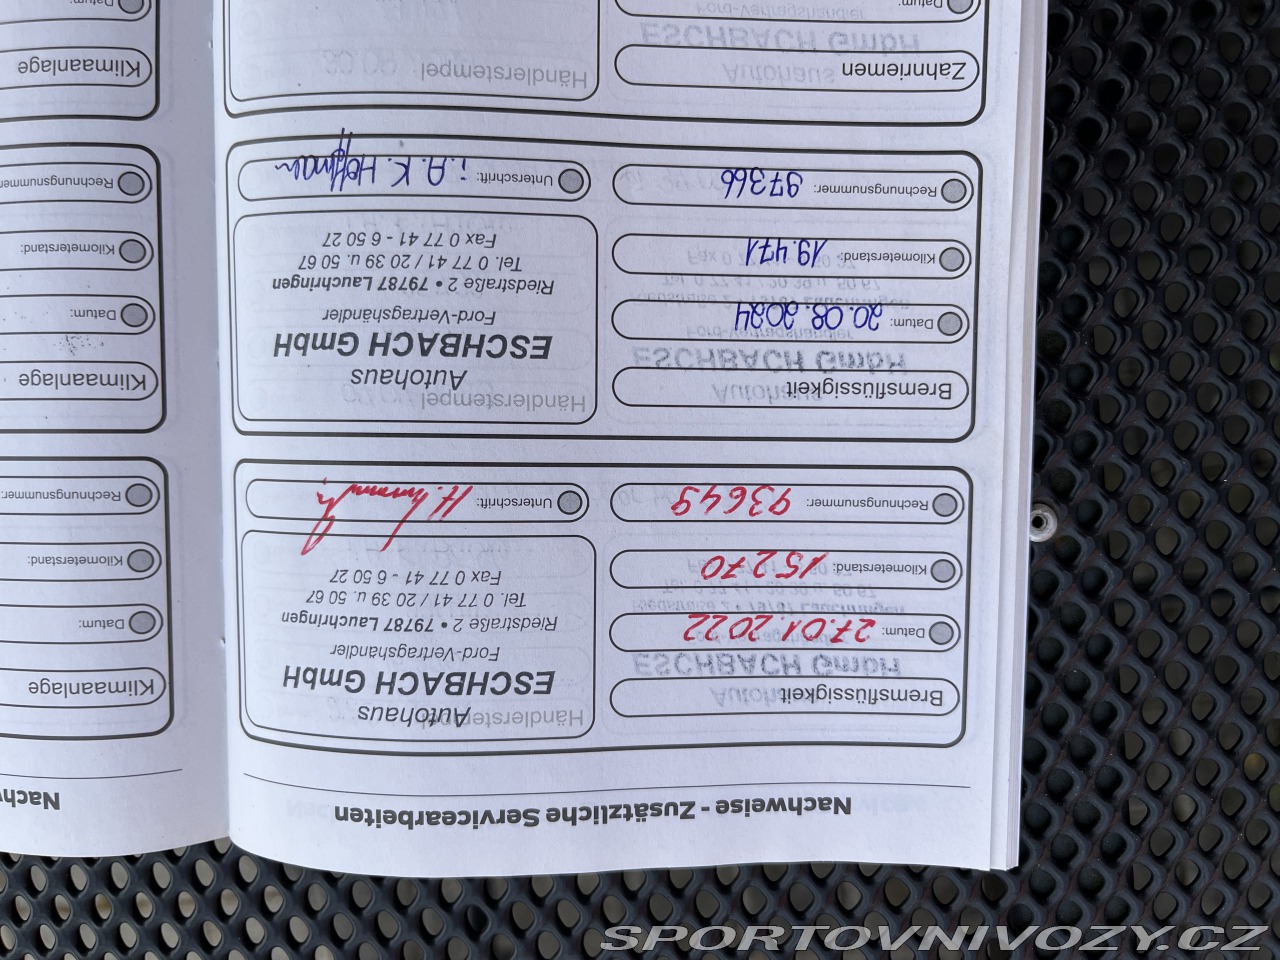 Nachweise - Zusätzliche Servicearbeiten
Bremsflüssigkeit
Datum: 27.01.2022
Kilometerstand: 15270
Rechnungsnummer: 93649
Händlerstempel
Autohaus
ESCHBACH GmbH
Ford-Vertragshändler
Riedstraße 2 • 79787 Lauchringen
Tel. 0 77 41 / 20 39 u. 50 67
Fax 0 77 41 - 6 50 27
Unterschrift:
Bremsflüssigkeit
Datum: 20.08.2024
Kilometerstand: 19.471
Rechnungsnummer: 97366
Händlerstempel
Autohaus
ESCHBACH GmbH
Ford-Vertragshändler
Riedstraße 2 • 79787 Lauchringen
Tel. 0 77 41 / 20 39 u. 50 67
Fax 0 77 41 - 6 50 27
Unterschrift: i. A. K. Hoffman
Zahnriemen
Datum:
Händlerstempel
Klimaanlage
Datum:
Kilometerstand:
Rechnungsnummer:
Klimaanlage
Datum:
Kilometerstand:
Rechnungsnummer:
Klimaanlage
Datum:
SPORTOVNIVOZY.CZ